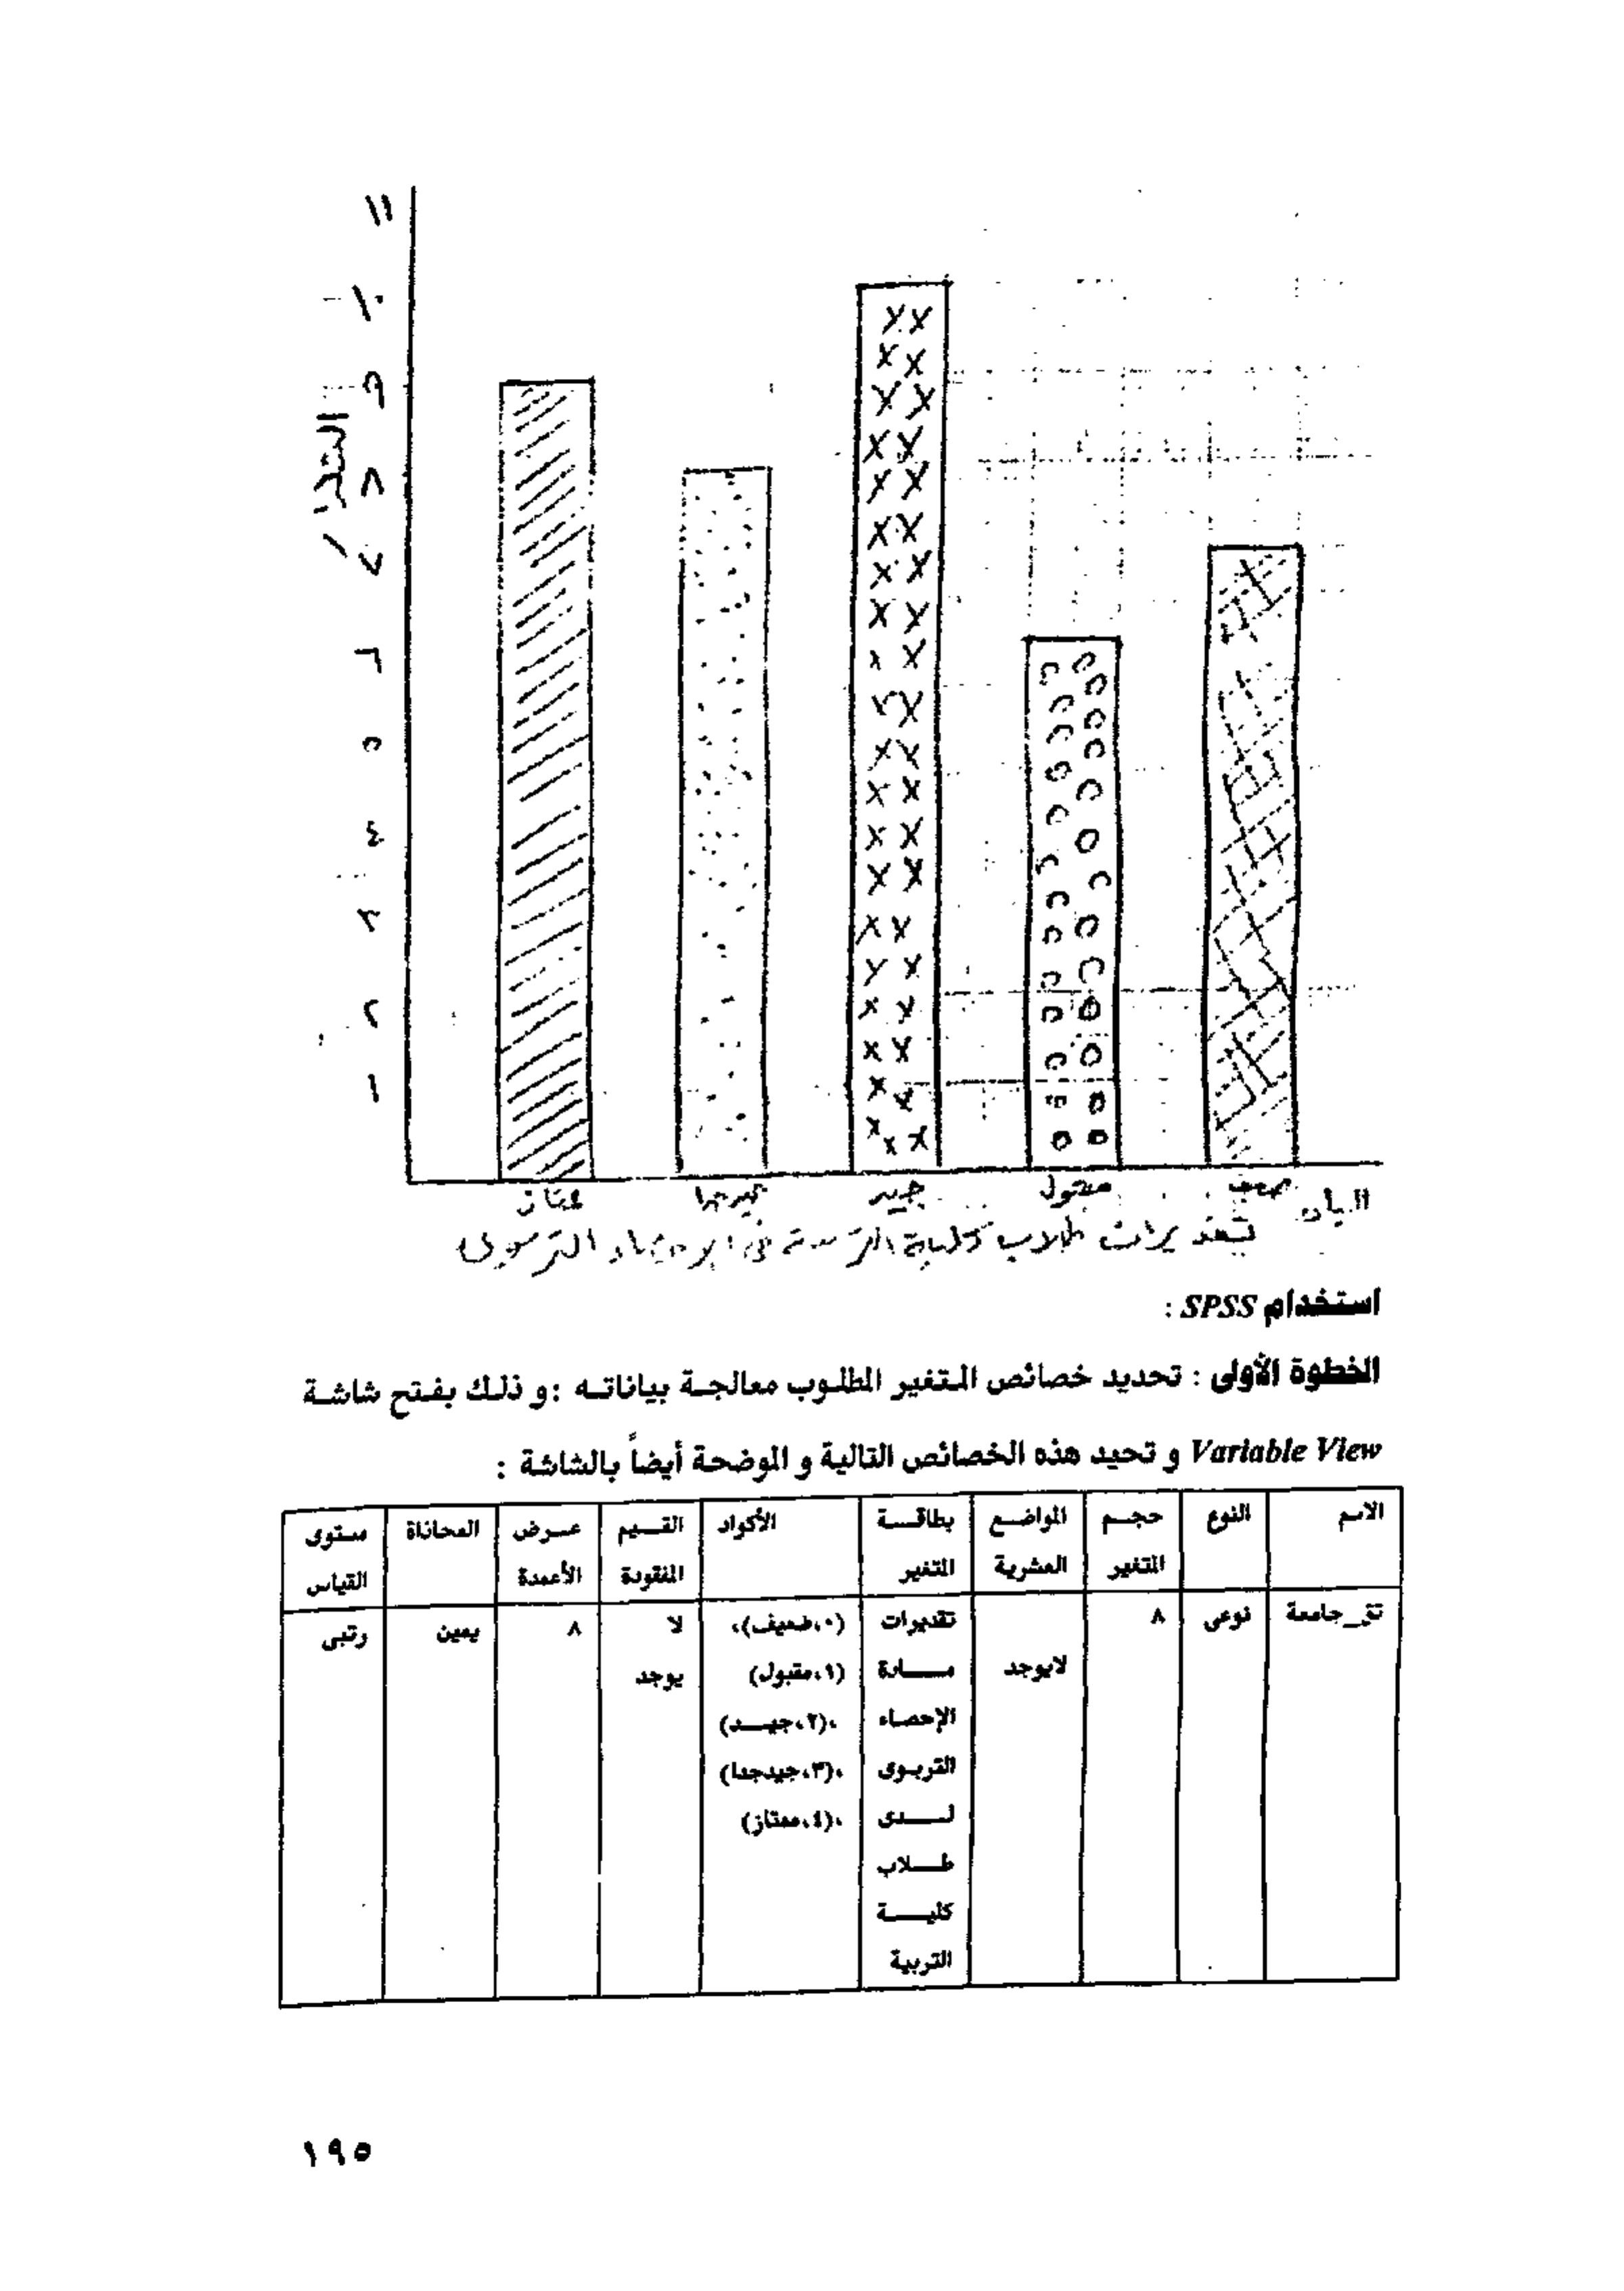 ١١
١٠
٩
٨
٧
٦
٥
٤
٣
٢
١
ممتاز جيد جدا جيد مقبول ضعيف البيان
تقديرات طلاب كلية التربية فى الإحصاء التربوى
استخدام SPSS :
الخطوة الأولى : تحديد خصائص المتغير المطلوب معالجة بياناته :و ذلك بفتح شاشة
Variable View و تحيد هذه الخصائص التالية و الموضحة أيضاً بالشاشة :
الاسم النوع حجم المتغير المواضع العشرية بطاقة المتغير الأكواد القيم المفقودة عرض الأعمدة المحاذاة مستوى القياس
تق_جامعة نوعى ٨ لايوجد تقديرات مادة الإحصاء التربوى لدى طلاب كلية التربية (٠،ضعيف)، (١،مقبول) ،(٢،جيد) ،(٣،جيدجدا) ،(٤،ممتاز) لا يوجد ٨ يمين رتبى
١٩٥